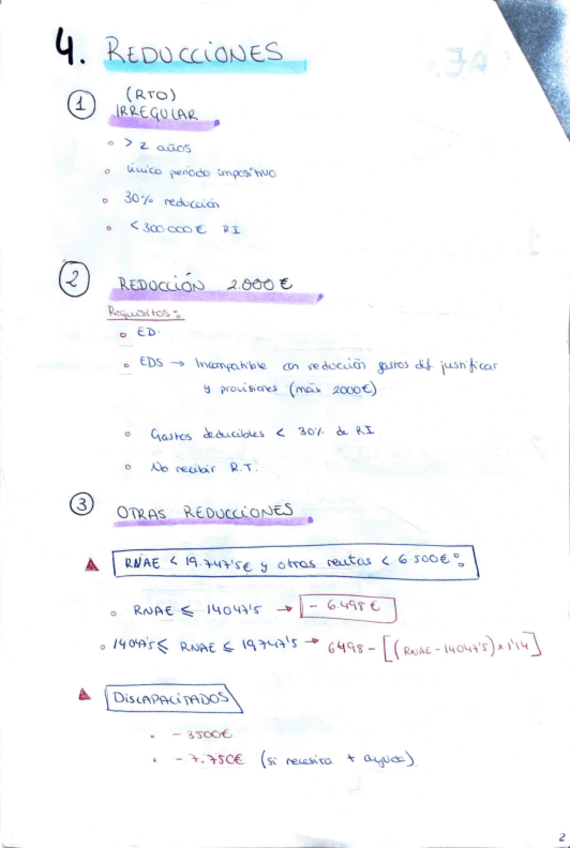 4. REDUCCIONES
① (RTO)
IRREGULAR
> 2 años
único periodo impositivo
30% reducción
< 300 000 € RI
② REDUCCIÓN 2.000 €
Requisitos:
ED.
EDS → Incompatible con reducción gastos dif justificar
y provisiones (máx 2000€)
Gastos deducibles < 30% de RI
No recibir R.T.
③ OTRAS REDUCCIONES
RNAE < 19.747'5€ y otras rentas < 6 500€:
RNAE ⩽ 14047'5 → - 6.498 €
14047'5 ⩽ RNAE ⩽ 19747'5 → 6498 - [(RNAE - 14047'5) x 1'14]
DISCAPACITADOS
- 3500€
- 7.750€ (si necesita + ayuda)
2